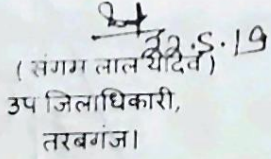 22.5.19
(संगम लाल यादव)
उप जिलाधिकारी,
तरबगंज।